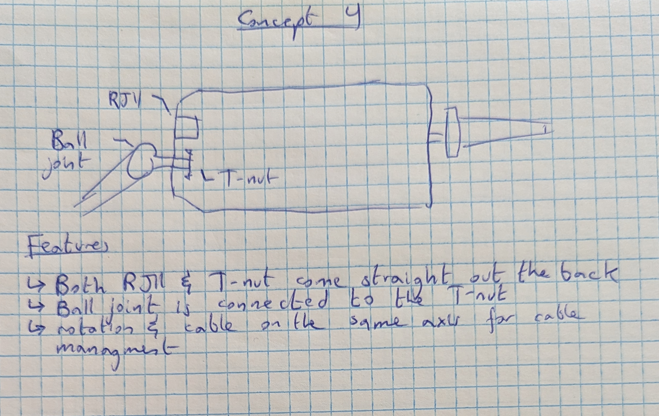 Concept 4
RJ11
Ball
joint
T-nut
Features
↳ Both RJ11 & T-nut come straight out the back
↳ Ball joint is connected to the T-nut
↳ rotation & cable on the same axis for cable
managment